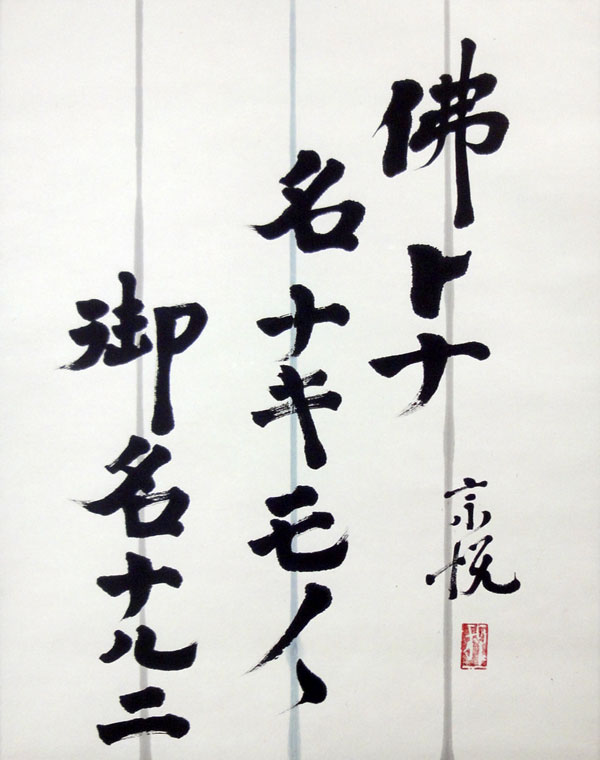 佛トナ
名ナキモノヽ
御名ナルニ
宗悦